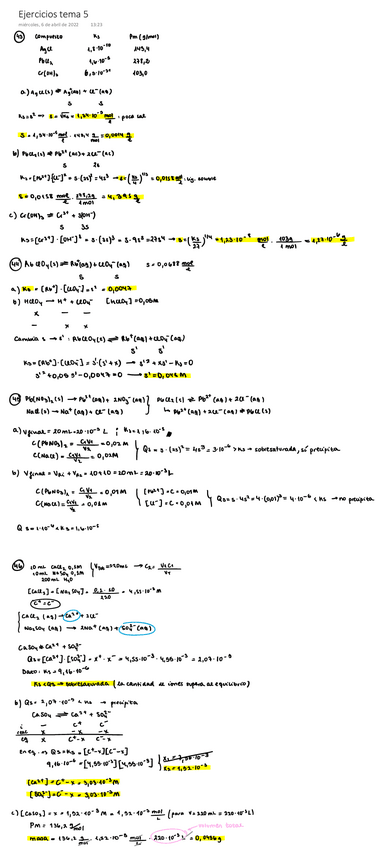 Ejercicios tema 5
miércoles, 6 de abril de 2022 13:23
43 Compuesto Ks Pm (g/mol)
AgCl 1,8·10⁻¹⁰ 143,4
PbCl₂ 1,6·10⁻⁵ 278,2
Cr(OH)₃ 6,3·10⁻³¹ 103,0
a) AgCl(s) ⇌ Ag⁺(aq) + Cl⁻(aq)
s s
Ks = s² → s = √Ks = 1,34·10⁻⁵ mol/l · poco sol
s = 1,34·10⁻⁵ mol/l · 143,4 g/mol = 0,0019 g/l
b) PbCl₂(s) ⇌ Pb²⁺(ac) + 2Cl⁻(ac)
s 2s
Ks = [Pb²⁺][Cl⁻]² = s·(2s)² = 4s³ → s = (Ks/4)^1/3 = 0,0158 mol/l
s = 0,0158 mol/l · 278,2g/1mol = 4,395 g/l
c) Cr(OH)₃ ⇌ Cr³⁺ + 3(OH⁻)
s 3s
Ks = [Cr³⁺]·[OH⁻]³ = s·(3s)³ = 27s⁴ → s = (Ks/27)^1/4 = 1,23·10⁻⁸ mol/l · 103g/1mol = 1,27·10⁻⁶ g/l
44 RbClO₄(s) ⇌ Rb⁺(aq) + ClO₄⁻(aq) s = 0,0688 mol/l
s s
a) Ks = [Rb⁺]·[ClO₄⁻] = s² = 0,0047
b) HClO₄ → H⁺ + ClO₄⁻ [HClO₄] = 0,05M
x — —
— x x
Cambia s → s' : RbClO₄(s) ⇌ Rb⁺(aq) + ClO₄⁻(aq)
s' s'
Ks = [Rb⁺]·[ClO₄⁻] = s'·(s'+x) → s'² + xs' − Ks = 0
s'² + 0,05 s' − 0,0047 = 0 → s' = 0,048 M
45 Pb(NO₃)₂(s) → Pb²⁺(aq) + 2NO₃⁻(aq) PbCl₂(s) ⇌ Pb²⁺(aq) + 2Cl⁻(aq)
NaCl(s) → Na⁺(aq) + Cl⁻(aq) ↳ Pb²⁺(aq) + 2Cl⁻(aq) ⇌ PbCl(s)
a) Vfinal = 20mL = 20·10⁻³ L ; Ks = 1,6·10⁻⁵
C(PbNO₃)₂ = = 0,02 M
C(NaCl) = = 0,02M
Qs = s·(2s)² = 4s³ = 3·10⁻⁵ > Ks → sobresaturada, sí precipita
b) Vfinal = 10+10 = 20mL = 20·10⁻³ L
C(PbNO₃)₂ = = 0,01 M [Pb²⁺] = C = 0,01M
C(NaCl) = = 0,01M [Cl⁻] = C = 0,01M
Qs = s·4s² = 4·(0,01)³ = 4·10⁻⁶ < Ks → no precipita
Qs = 1·10⁻⁶ < Ks = 1,6·10⁻⁵
46 10 mL CaCl₂ 0,1M
10 mL Na₂SO₄ 0,1M
200 mL H₂O
[CaCl₂] = [Na₂SO₄] = = 4,55·10⁻³ M
C⁺ = C⁻
CaCl₂(aq) → Ca²⁺ + 2Cl⁻
Na₂SO₄(aq) → 2Na⁺(aq) + SO₄²⁻(aq)
CaSO₄ ⇌ Ca²⁺ + SO₄²⁻
Qs = [Ca²⁺]·[SO₄²⁻] = x⁺·x⁻ = 4,55·10⁻³·4,55·10⁻³ = 2,07·10⁻⁵
Dato: Ks = 9,16·10⁻⁶
Ks < Qs → sobresaturada (la cantidad de iones supera al equilibrio)
b) Qs = 2,07·10⁻⁵ > Ks → precipita
CaSO₄ ⇌ Ca²⁺ + SO₄²⁻
i — C⁺ C⁻
reac x −x −x
eq x C⁺−x C⁻−x
En eq. → Qs = Ks = [C⁺−x][C⁻−x]
x₂ = 1,52·10⁻³
[Ca²⁺] = C⁺−x = 3,03·10⁻³ M
[SO₄²⁻] = C⁻−x = 3,03·10⁻³ M
c) [CaSO₄] = x = 1,52·10⁻³ M = 1,52·10⁻³ mol/L (para V = 220mL = 220·10⁻³ L)
Pm = 136,2 g/mol
masa = 136,2 g/mol · 1,52·10⁻³ mol/L · 220·10⁻³ L = 0,0456g